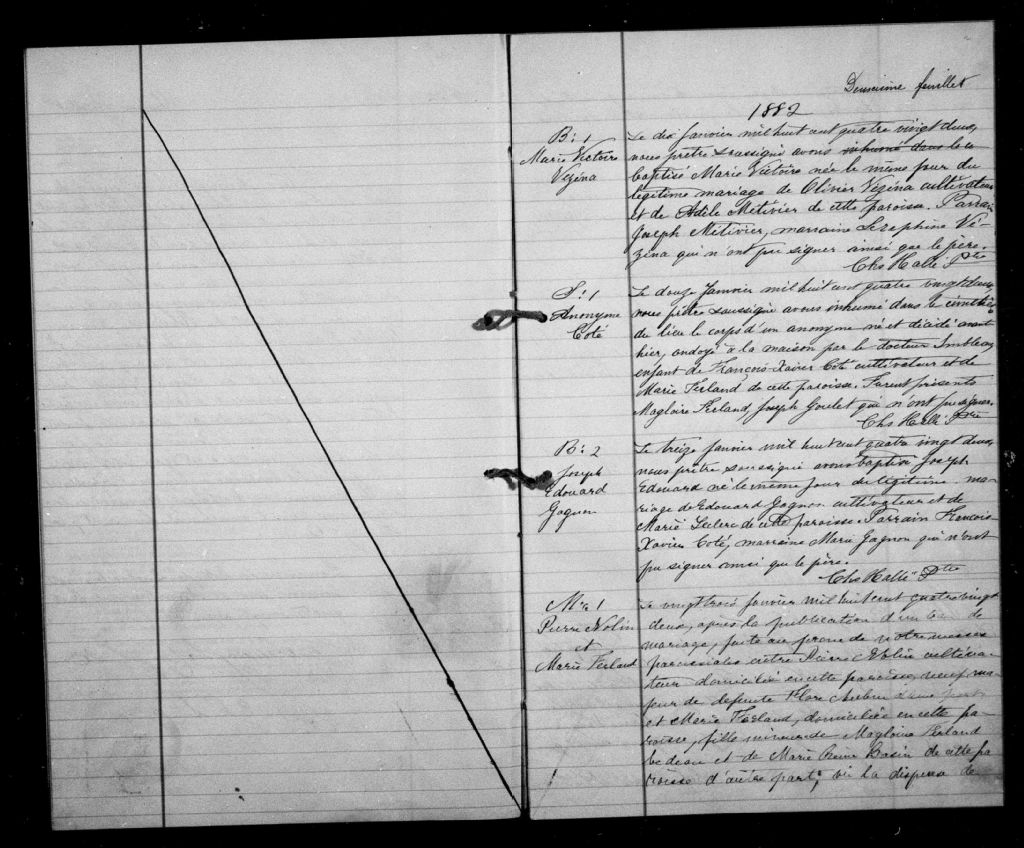 Deuxième feuillet
1882
B: 1
Marie Victoire
Vézina
Le dix Janvier mil huit cent quatre vingt deux,
nous prêtre soussigné avons inhumé dans le c
baptisé Marie Victoire née le même jour du
légitime mariage de Olivier Vézina cultivateur
et de Adèle Métivier de cette paroisse. Parrain
Joseph Métivier, marraine Séraphine Vé-
zina qui n'ont pu signer ainsi que le père.
Chs Hallé Ptre
S: 1
Anonyme
Coté
Le douze Janvier mil huit cent quatre vingt deux
nous prêtre soussigné avons inhumé dans le cimetière
du lieu le corps d'un anonyme né et décédé avant
hier, ondoyé à la maison par le docteur
enfant de François-Xavier Coté cultivateur et de
Marie Ferland de cette paroisse. Furent présents
Magloire Ferland, Joseph Goulet qui n'ont pu signer.
Chs Hallé Ptre
B: 2
Joseph
Edouard
Gagnon
Le treize Janvier mil huit cent quatre vingt deux,
nous prêtre soussigné avons baptisé Joseph
Edouard né le même jour du légitime ma-
riage de Edouard Gagnon cultivateur et de
Marie Leclerc de cette paroisse. Parrain François-
Xavier Coté, marraine Marie Gagnon qui n'ont
pu signer ainsi que le père.
Chs Hallé Ptre
M: 1
Pierre Nolin
et
Marie Ferland
Le vingt trois Janvier mil huit cent quatre vingt
deux, après la publication d'un ban de
mariage, faite au prône de notre messe
paroissiale entre Pierre Nolin cultiva-
teur domicilié en cette paroisse, veuf ma-
jeur de défunte Flore Aubin d'une part,
et Marie Ferland, domiciliée en cette pa-
roisse, fille mineure de Magloire Ferland
bedeau et de Marie Reine Basin de cette pa
roisse d'autre part; vu la dispense de